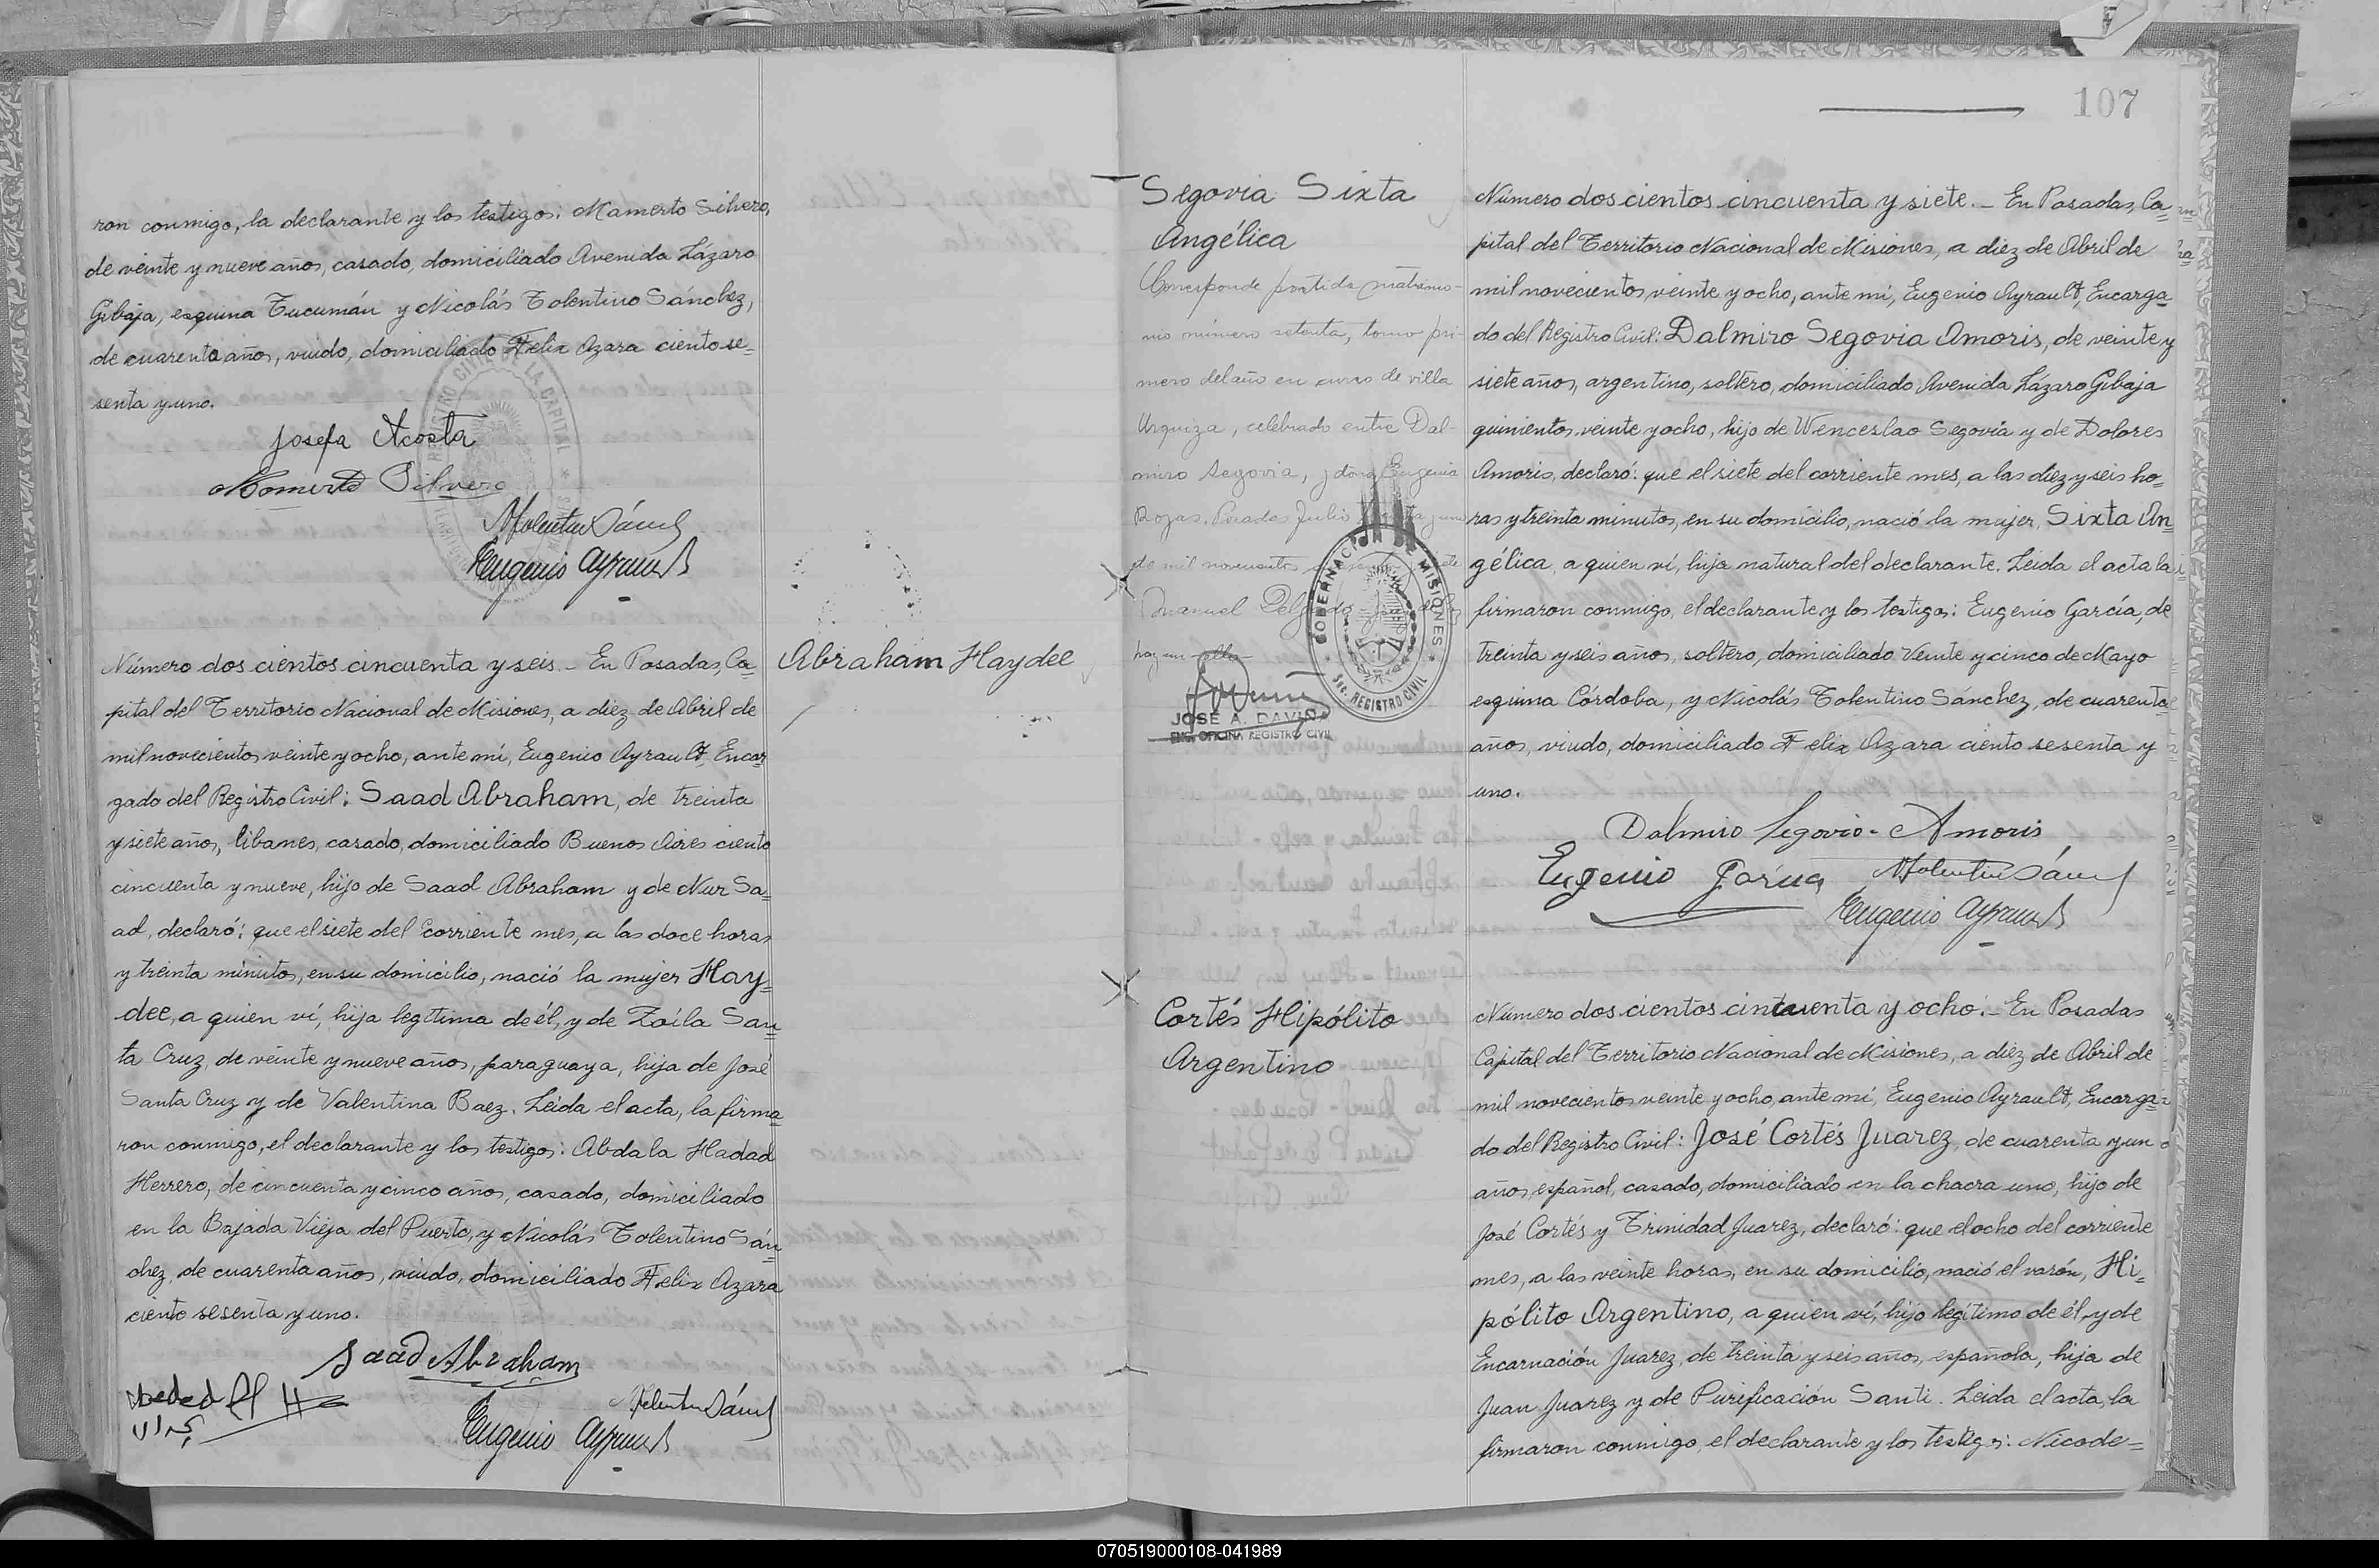 ron conmigo, la declarante y los testigos: Mamerto Silvero,
de veinte y nueve años, casado, domiciliado Avenida Lázaro
Gibaja, esquina Tucumán y Nicolás Tolentino Sánchez,
de cuarenta años, viudo, domiciliado Felix Azara ciento se=
senta y uno.
Josefa Acosta
Mamerto Silvero
NTolentino Sánchez
Eugenio Ayrault
Número dos cientos cincuenta y seis.- En Posadas, Ca=
pital del Territorio Nacional de Misiones, a diez de Abril de
mil novecientos veinte y ocho, ante mí, Eugenio Ayrault, Encar
gado del Registro Civil: Saad Abraham, de treinta
y siete años, libanes, casado, domiciliado Buenos Aires ciento
cincuenta y nueve, hijo de Saad Abraham y de Nur Sa=
ad, declaró: que el siete del corriente mes, a las doce horas
y treinta minutos, en su domicilio, nació la mujer Hay=
dee, a quien ví, hija legítima de él, y de Zoila San
ta Cruz, de veinte y nueve años, paraguaya, hija de José
Santa Cruz y de Valentina Baez. Leida el acta, la firma
ron conmigo, el declarante y los testigos: Abdala Hadad
Herrero, de cincuenta y cinco años, casado, domiciliado
en la Bajada Vieja del Puerto, y Nicolás Tolentino Sán
chez, de cuarenta años, viudo, domiciliado Felix Azara
ciento sesenta y uno.
Saad Abraham
NTolentino Sánchez
Eugenio Ayrault
Abraham Haydee
107
Segovia Sixta
Angélica
Corresponde partida matrimo-
nio número setenta, tomo pri-
mero del año en curso de villa
Urquiza, celebrado entre Dal-
miro Segovia, y doña Eugenia
Rojas. Posadas Julio
de mil novecientos
Manuel
JOSÉ A. DAVIÑA
ENC. OFICINA REGISTRO CIVIL
GOBERNACION DE MISIONES
SEC. REGISTRO CIVIL
Número dos cientos cincuenta y siete.- En Posadas, Ca=
pital del Territorio Nacional de Misiones, a diez de Abril de
mil novecientos veinte y ocho, ante mí, Eugenio Ayrault, Encarga
do del Registro Civil: Dalmiro Segovia Amoris, de veinte y
siete años, argentino, soltero, domiciliado Avenida Lázaro Gibaja
quinientos veinte y ocho, hijo de Wenceslao Segovia y de Dolores
Amoris, declaró: que el siete del corriente mes, a las diez y seis ho=
ras y treinta minutos, en su domicilio, nació la mujer, Sixta An=
gélica, a quien ví, hija natural del declarante. Leida el acta la
firmaron conmigo, el declarante y los testigos: Eugenio García, de
treinta y seis años, soltero, domiciliado Veinte y cinco de Mayo
esquina Córdoba, y Nicolás Tolentino Sánchez, de cuarenta
años, viudo, domiciliado Felix Azara ciento sesenta y
uno.
Dalmiro Segovia-Amoris
Eugenio García NTolentino Sánchez
Eugenio Ayrault
Cortés Hipólito
Argentino
Número dos cientos cincuenta y ocho.- En Posadas
Capital del Territorio Nacional de Misiones, a diez de Abril de
mil novecientos veinte y ocho, ante mí, Eugenio Ayrault, Encarga=
do del Registro Civil: José Cortés Juarez, de cuarenta y un
años, español, casado, domiciliado en la chacra uno, hijo de
José Cortés y Trinidad Juarez, declaró: que el ocho del corriente
mes, a las veinte horas, en su domicilio, nació el varón, Hi=
pólito Argentino, a quien ví, hijo legítimo de él, y de
Encarnación Juarez, de treinta y seis años, española, hija de
Juan Juarez y de Purificación Santi. Leida el acta, la
firmaron conmigo, el declarante y los testigos: Nicode=
070519000108-041989